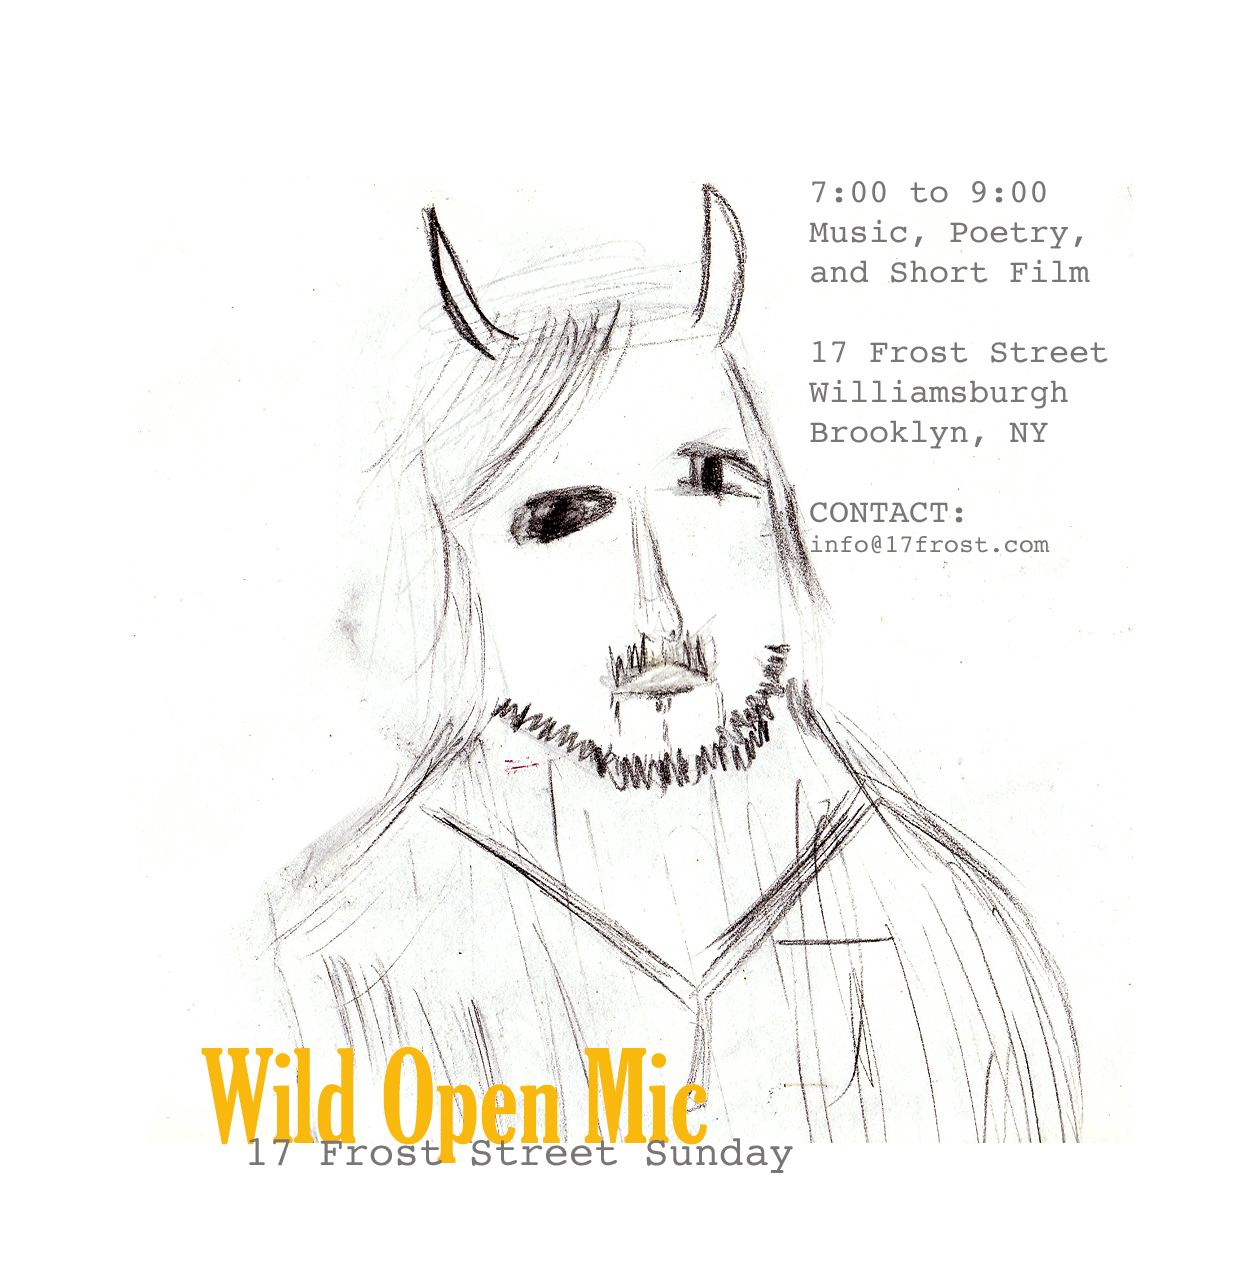 7:00 to 9:00
Music, Poetry,
and Short Film
17 Frost Street
Williamsburgh
Brooklyn, NY
CONTACT:
info@17frost.com
Wild Open Mic
17 Frost Street Sunday